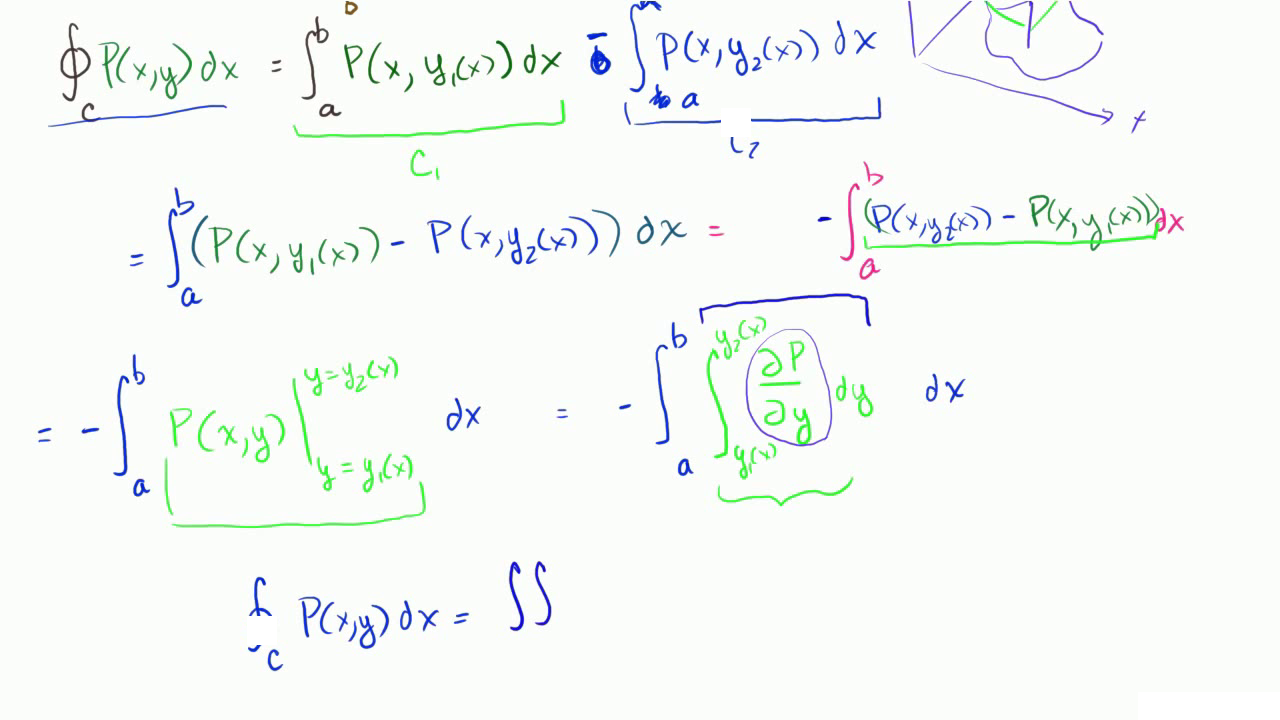 ∮_C P(x,y) dx = ∫_a^b P(x, y₁(x)) dx - ∫_a P(x, y₂(x)) dx
x
C₁
C₂
= ∫_a^b (P(x, y₁(x)) - P(x, y₂(x))) dx = - ∫_a^b (P(x, y₂(x)) - P(x, y₁(x))) dx
= - ∫_a^b P(x,y) |_{y = y₁(x)}^{y = y₂(x)} dx = - ∫_a^b ∫_{y₁(x)}^{y₂(x)} ∂P/∂y dy dx
∮_C P(x,y) dx = ∬